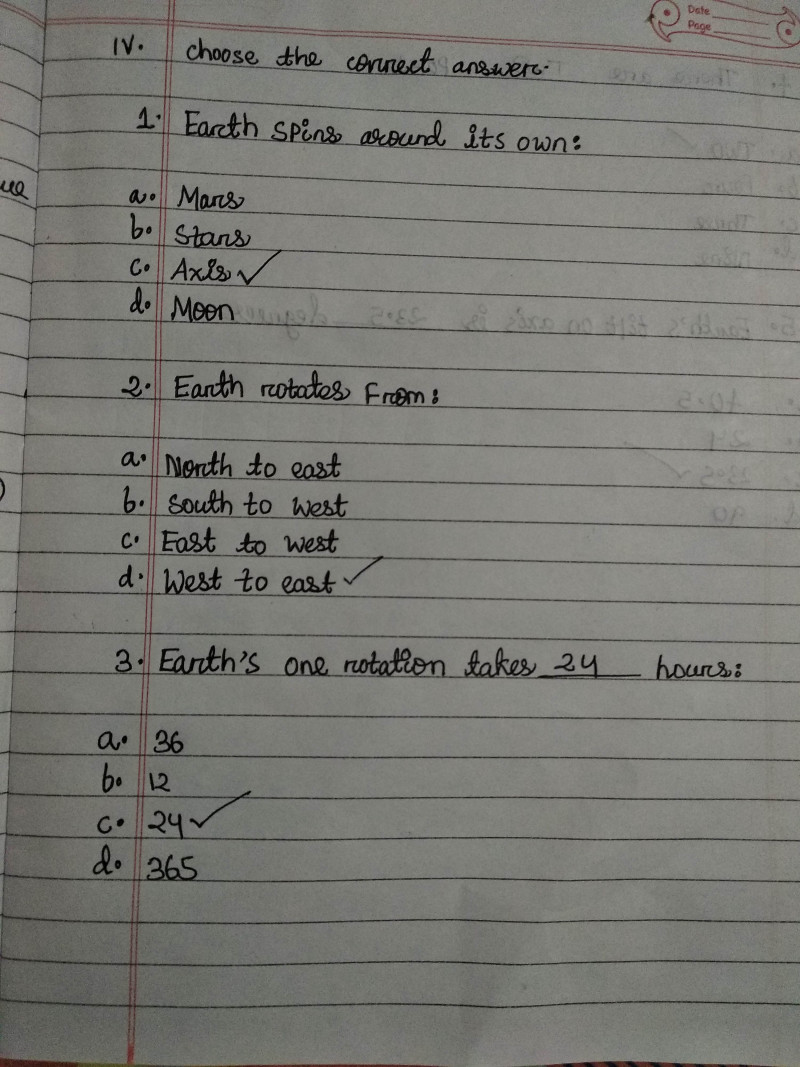 Date
Page
IV. choose the correct answer.
1. Earth spins around its own:
a. Mars
b. Stars
c. Axis ✓
d. Moon
2. Earth rotates From:
a. North to east
b. South to west
c. East to west
d. West to east ✓
3. Earth's one rotation takes 24 hours:
a. 36
b. 12
c. 24 ✓
d. 365